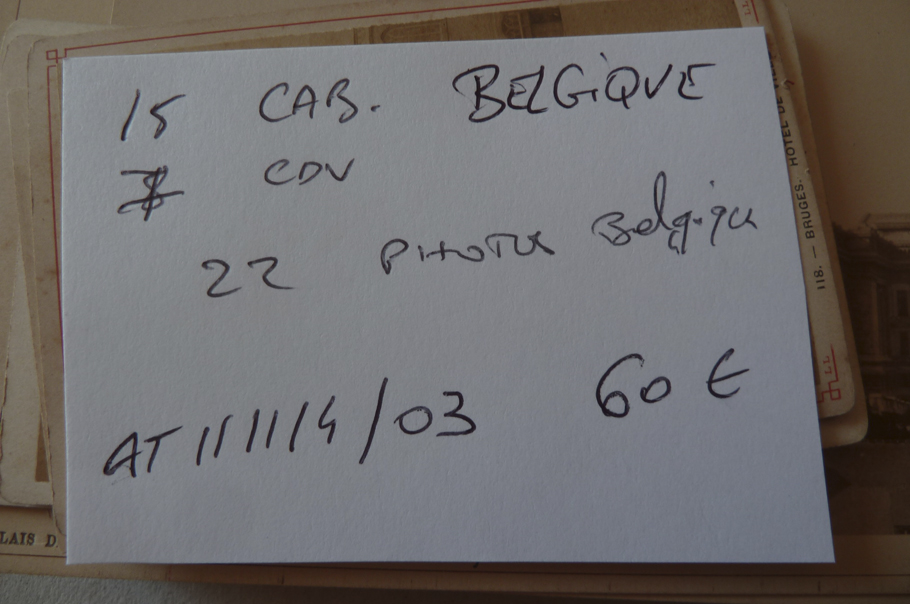 15 CAB. BELGIQUE
7 CDV
22 PHOTOS Belgique
AT 11/11/4/03 60 €
118. — BRUGES. HOTEL DE
LL
LAIS D